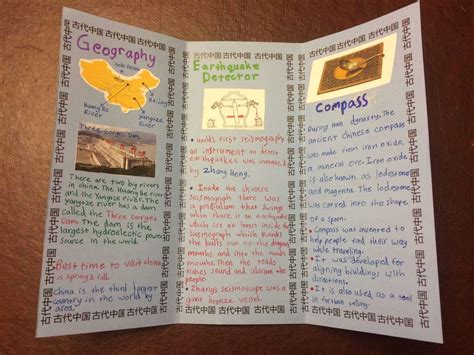 古代中国 古代中国 古代中国
Geography
Gobi Desert
Beijing
Huang He
River
Yangtze
River
Three Gorges Dam
There are two big rivers
in china. The Huang He River
and the Yangize river. The
Yangize river has a dam
called the Three Gorges
Dam. The dam is the
largest hydroelectic power
source in the world.
Best time to visit china
is spring & fall.
China is the third largest
country in the world by
area.
Earthquake
Detector
World's First seismograph
an instrument to detect
earthquakes was invented
by Zhang Heng.
Inside the chinese
seismograph there was
a pendulum that swings
when there is an earthquake
which knocks
the balls out of the dragons
mouths and into the toads
mouths. Then the toads
makes sound and alarms the
people.
Zhang's seismoscope was a
giant bronze vessel.
Compass
During Han dynasty, the
ancient chinese compass
was made from iron oxide,
a mineral ore. Iron oxide
is also known as lodestone
and magenta. The lodestone
was carved into the shape
of a spoon.
Compass was invented to
help people find their way
while traveling.
It was developed for
aligning buildings with
directions.
It is also used as a tool
in fortune telling.
古代中国 古代中国 古代中国